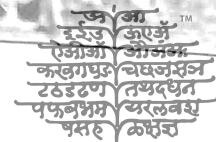 अ आ TM
इ ई उ ऊ ए ऍ
ऐ ओ औ
क ख ग घ ङ च छ ज झ ञ
ट ठ ड ढ ण त थ द ध न
प फ ब भ म य र ल व श
ष स ह ळ क्ष ज्ञ